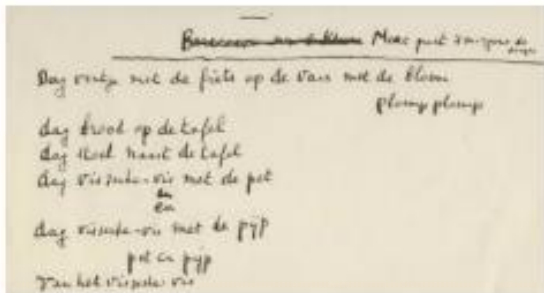 Marc groet 's morgens de dingen
Dag ventje met de fiets op de vaas met de bloem
ploem ploem
dag brood op de tafel
dag stoel naast de tafel
dag visserke-vis met de pet
en
dag visserke-vis met de pijp
pet en pijp
van het visserke-vis